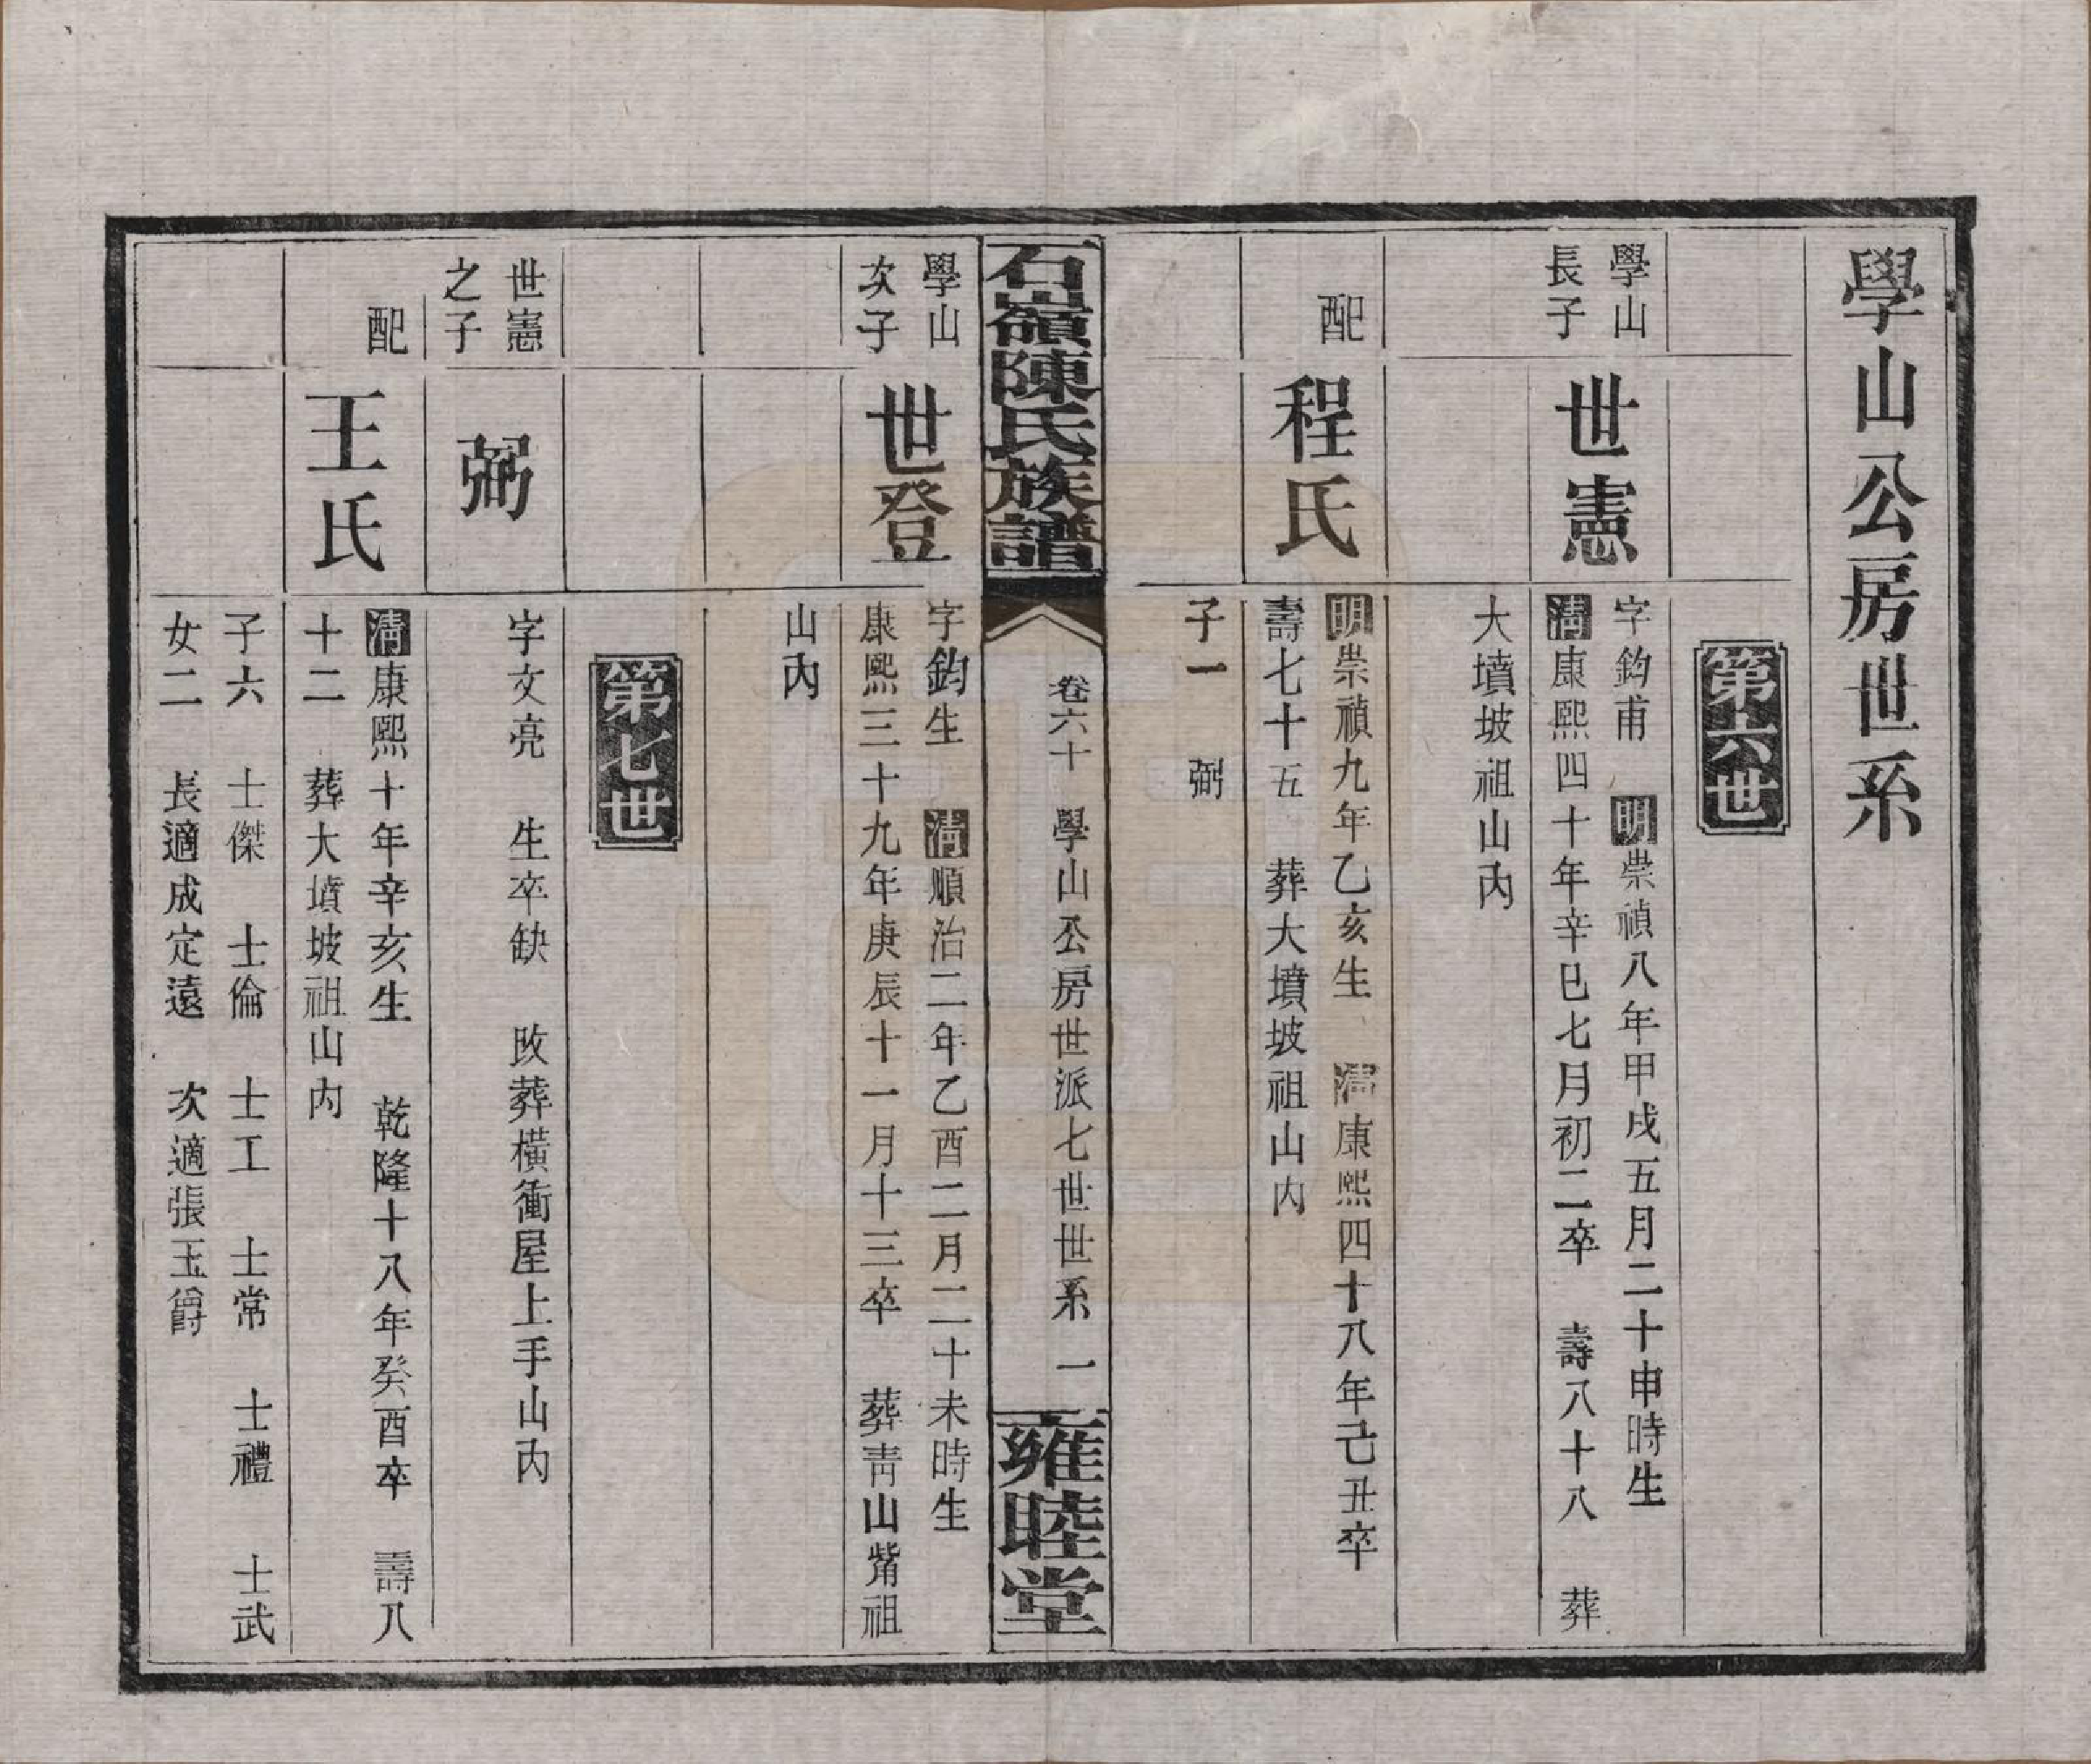 學山公房世系
第六世
學山
長子
世憲
字鈞甫　明崇禎八年甲戌五月二十申時生
清康熙四十年辛巳七月初二卒　壽八十八　葬
大墳坡祖山內
配
程氏
明崇禎九年乙亥生　清康熙四十八年己丑卒
壽七十五　葬大墳坡祖山內
子一　弼
石嶺陳氏族譜
卷六十　學山公房世派七世世系　一
雍睦堂
學山
次子
世登
字鈞生　清順治二年乙酉二月二十未時生
康熙三十九年庚辰十一月十三卒　葬靑山觜祖
山內
第七世
世憲
之子
弼
字文亮　生卒缺　改葬橫衝屋上手山內
配
王氏
清康熙十年辛亥生　乾隆十八年癸酉卒　壽八
十二　葬大墳坡祖山內
子六　士傑　士倫　士工　士常　士禮　士武
女二　長適成定遠　次適張玉爵